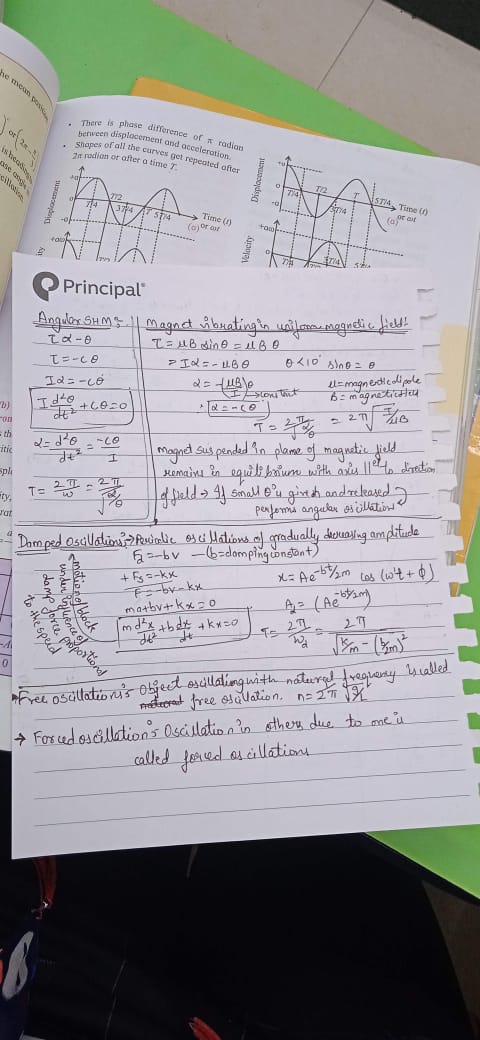 he mean position
There is phase difference of π radian
between displacement and acceleration.
Shapes of all the curves get repeated after
2π radian or after a time T.
Displacement
+a
0
-a
T/4
T/2
3T/4
T
5T/4
Time (t)
(a) or ωt
+aω
Displacement
+a
0
-a
T/4
T/2
3T/4
T
5T/4
Time (t)
(a) or ωt
Velocity
+aω
0
T/4
3T/4
Principal®
Angular SHM:
τ α -θ
τ = -cθ
Iα = -cθ
I d²θ/dt² + cθ = 0
α = d²θ/dt² = -cθ/I
T = 2π/ω = 2π/√(α/θ)
magnet vibrating in uniform magnetic field:
τ = μB sinθ = μBθ
= Iα = -μBθ θ<10° sinθ = θ
α = -(μB/I)θ → constant
μ = magnetic dipole
B = magnetic field
∴ α = -cθ
T = 2π/√(α/θ) = 2π√(I/μB)
magnet suspended in plane of magnetic field
remains in equilibrium with axis ||el to direction
of field → If small θ is given and released
performs angular oscillation
Damped Oscillations:→ Periodic oscillations of gradually decreasing amplitude
F₂ = -bv - (b = damping constant)
+ Fs = -kx
F = -bv - kx
ma+bv+kx = 0
m d²x/dt² + b dx/dt + kx = 0
x = Ae^-bt/2m cos (ω't + ϕ)
A₂ = (Ae^-bt/2m)
T = 2π/ω₂ = 2π/√(k/m - (b/2m)²)
motion of
under influence of
damp force proportional
to the speed
Free oscillations: Object oscillating with natural frequency is called
free oscillation.
→ Forced oscillations Oscillation in others due to one is
called forced oscillations